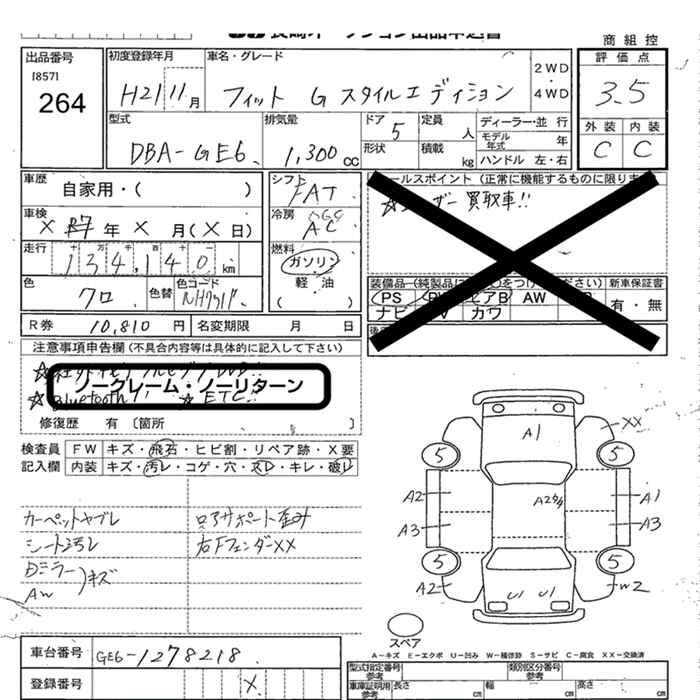 商組控
出品番号
[857]
264
初度登録年月
H21 11月
車名・グレード
フィット G スタイルエディション
2WD
・
4WD
評価点
3.5
外装 内装
C C
型式
DBA-GE6
排気量
1,300cc
ドア 5
形状
定員 人
積載 kg
ディーラー・並行
モデル年式 年
ハンドル 左・右
車歴
自家用・( )
車検
X R7年 X 月(X 日)
走行
134,140 km
色
クロ
色替
色コード
シフト
FAT
冷房
AC
燃料
ガソリン
・
軽 油
( )
R券 10,810 円
名変期限 月 日
セールスポイント (正常に機能するものに限ります)
☆ユーザー買取車!!
装備品
PS
エアB AW
ナビ
カワ
新車保証書
有・無
注意事項申告欄 (不具合内容等は具体的に記入して下さい)
ノークレーム・ノーリターン
☆Bluetooth ☆ETC!!
修復歴 有 〔箇所 〕
検査員
記入欄
FW キズ・飛石・ヒビ割・リペア跡・X要
内装 キズ・汚レ・コゲ・穴・スレ・キレ・破レ
カーペットヤブレ
シート汚レ
Dミラー
AW
キズ
右Fフェンダー XX
コアサポート歪み
A1
XX
5
5
A2
A3
A1
A3
5
5
A2
W2
U1 U1
スペア
A-キズ E-エクボ U-凹み W-補修跡 S-サビ C-腐食 XX-交換済
車台番号 GE6-1278218
登録番号 X
型式指定番号
参考
類別区分番号
参考
車庫証明用
参考
長さ cm 幅 cm 高さ cm